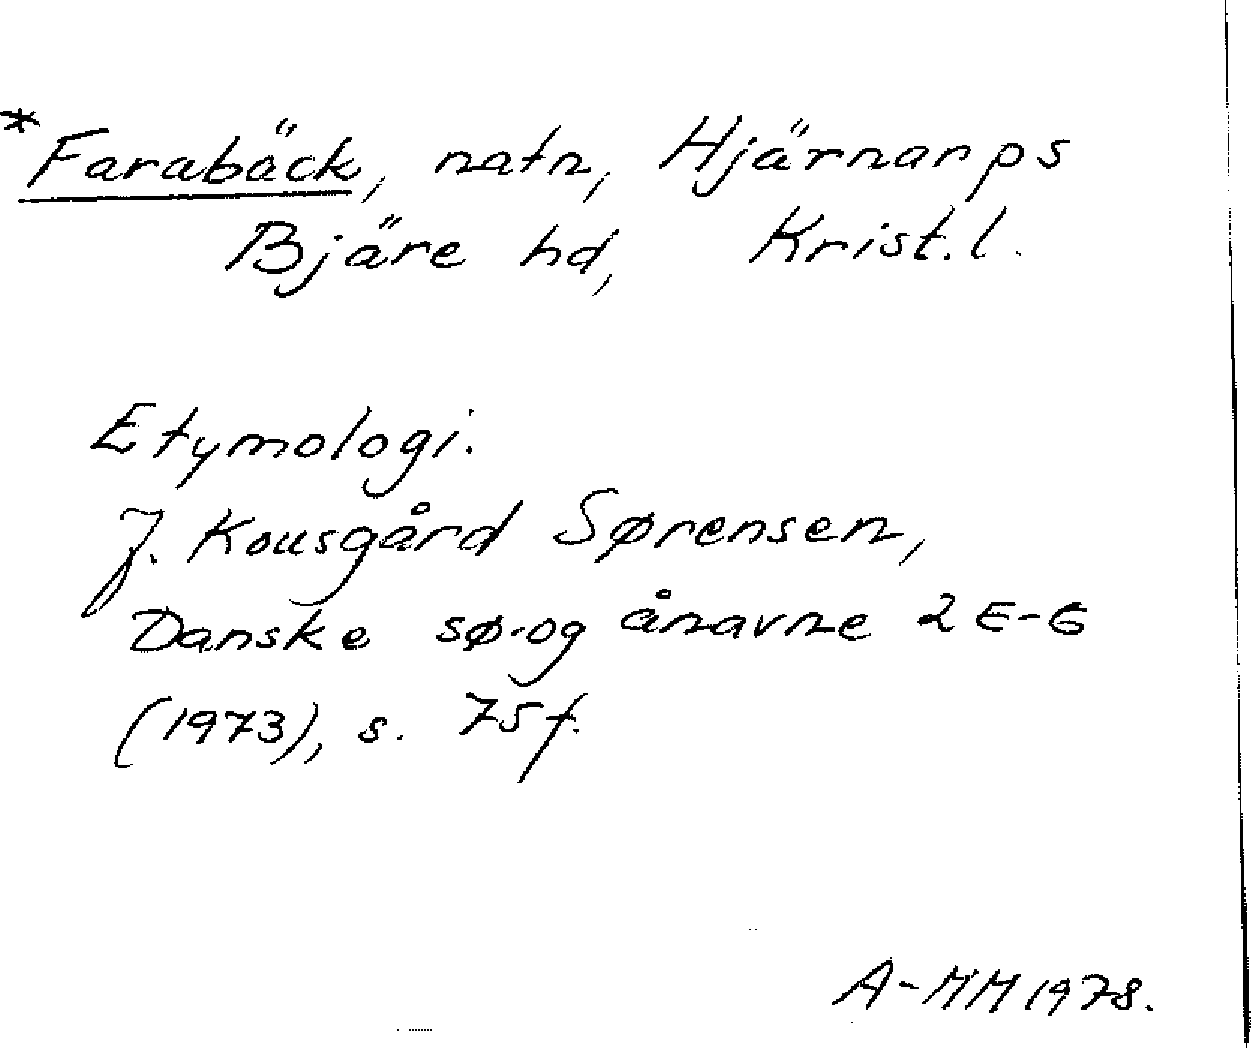 *Farabäck, natn, Hjärnarps
Bjäre hd, Krist.l.
Etymologi.
J. Kousgård Sørensen,
Danske sø-og ånavne 2 E-G
(1973), s. 75f.
A-MM 1978.